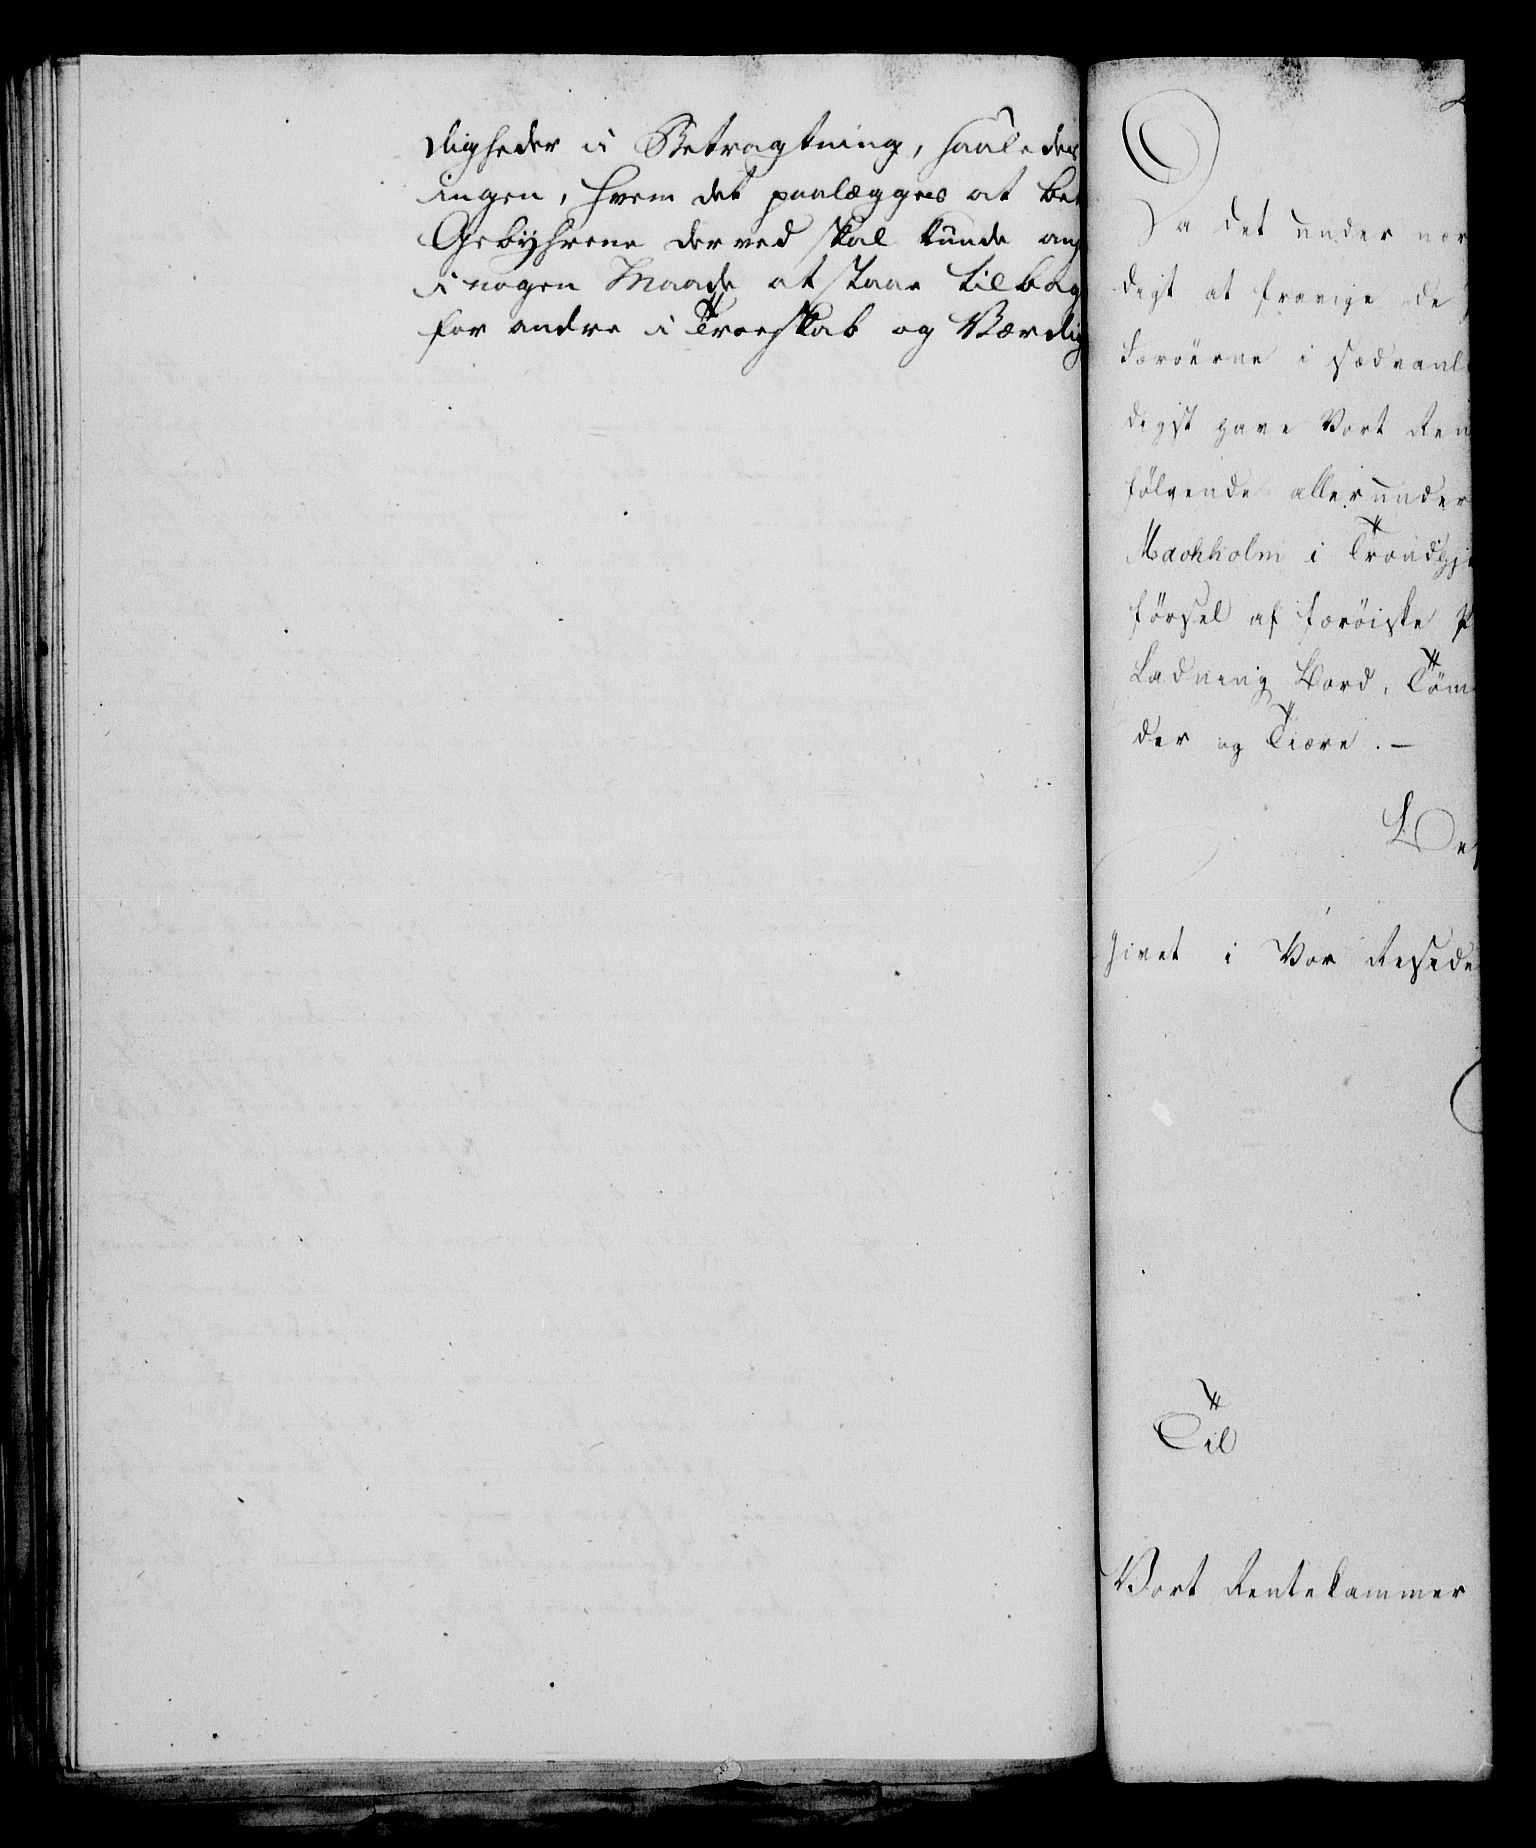 digheder i Betragtning, saaledes
ingen, hvem det paalægges at bet
Gebyhrene derved skal kunde ans
i nogen Maade at staae tilbag
for andre i Troeskab og Værdig
Da det under nær
digt at fravige de
Færöerne i sædvanl
digst have Vort Ren
fölgende allerunder
Mackholm i Trondhj
försel af færöiske P
Ladning Bord, Töm
der og Tiære. –
Be
Givet i Vor Reside
Til
Vort Rentekammer